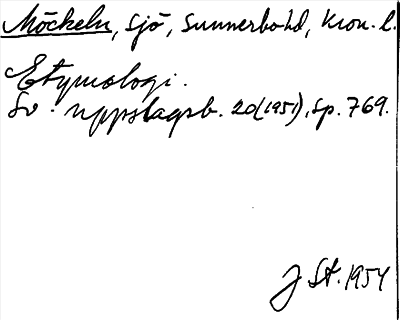 Möckeln, sjö, Sunnerbo hd, Kron. l.
Etymologi.
Sv. uppslagsb. 20(1951), sp. 769.
J St. 1954